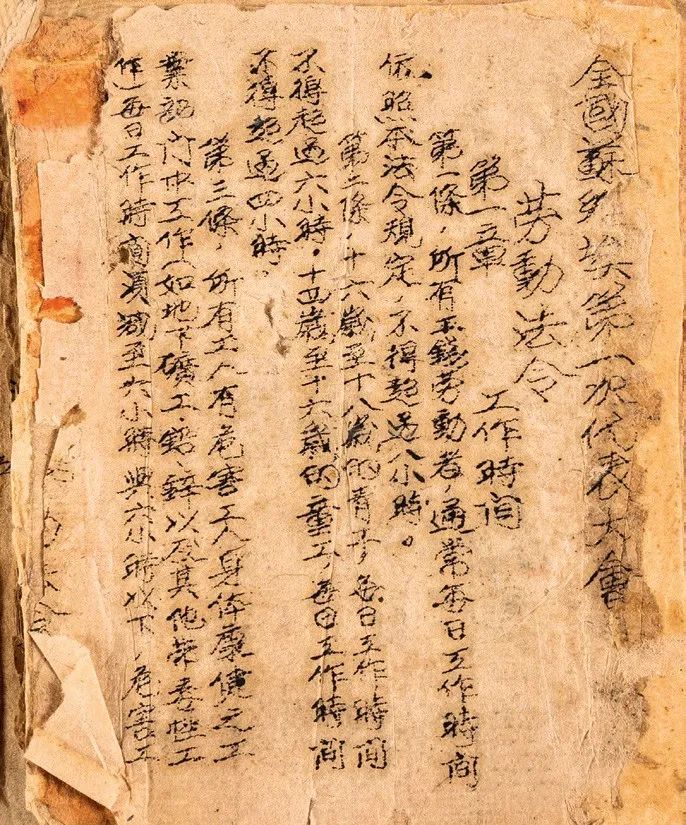 全國蘇維埃第一次代表大會
勞動法令
第一章 工作時間
第一條，所有工錢勞動者，通常每日工作時間
依照本法令規定，不得超過八小時。
第二條，十六歲至十八歲的青工，每日工作時間
不得超過六小時。十四歲至十六歲的童工，每日工作時間
不得超過四小時。
第三條，所有工人有危害工人身体康健之工
業部門中工作（如地下礦工、鉛、鋅以及其他带毒性工
作）每日工作時間須減至六小時與六小時以下，危害工